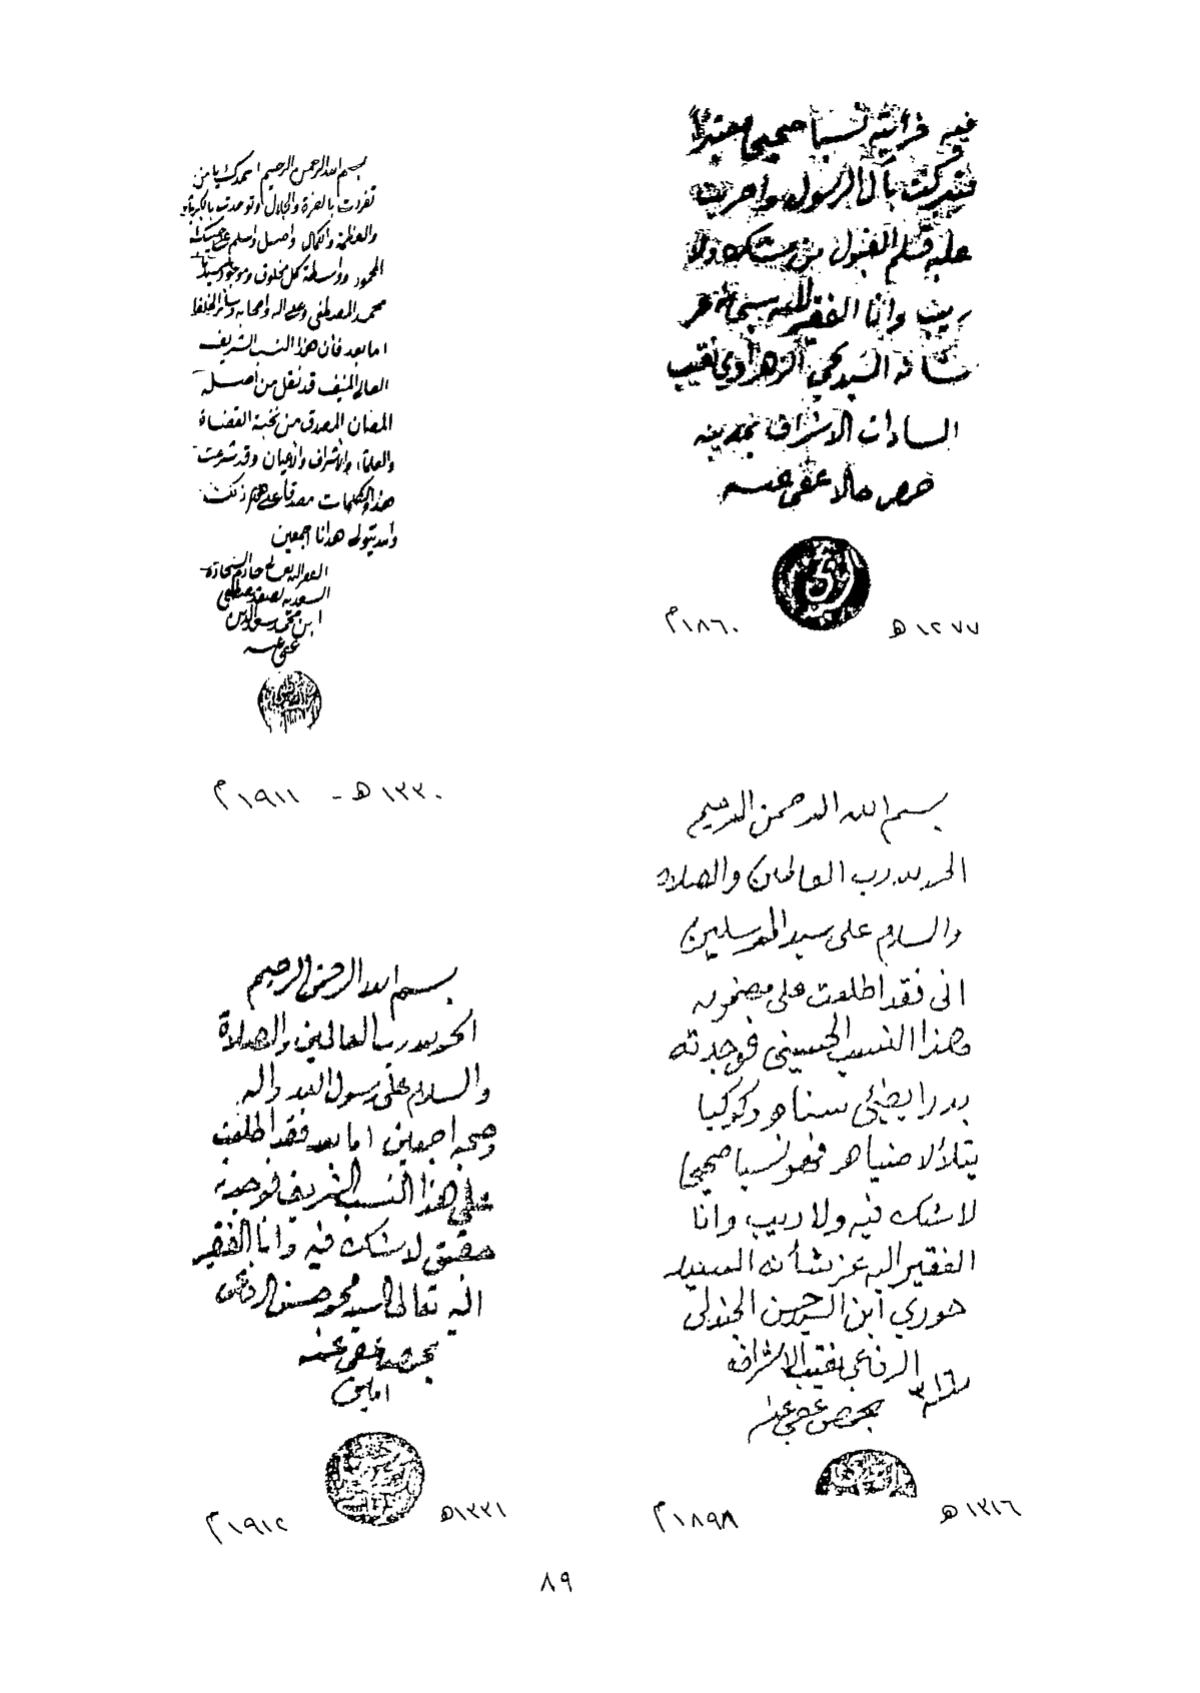 فيه فرأيته نسبا صحيحا معتبرا
فتبركت بآل الرسول واجريت
عليه قلم القبول من شك ولا
ريب وانا الفقير لله سبحانه عز
شانه السيد يحيى الزهراوي نقيب
السادات الاشراف بمدينه
حمص حالا عفى عنه
١٢٧٧ هـ ١٨٦٠ م
بسم الله الرحمن الرحيم احمدك يا من
تفردت بالعزة والجلال وتوحدت بالكبرياء
والعظمة والكمال واصلي واسلم على حبيبك
المحمود وواسطة كل مخلوق وموجود سيدنا
محمد المصطفى وعلى اله واصحابه وسائر الخلفا
اما بعد فأن هذا النسب الشريف
العالي المنيف قد نقل من اصله
المصان المصدق من نخبة القضاة
والعلماء والأشراف والأعيان وقد شرعت
هذه الكلمات مصدقا على ذلك
والله يتولى هدانا اجمعين
الفقير اليه تعالى خادم السجادة
السعديه بحمص مصطفى
ابن محمد سعد الدين
عفي عنه
١٣٣٠ هـ - ١٩١١ م
بسم الله الرحمن الرحيم
الحمد لله رب العالمين والصلاه
والسلام على سيد المرسلين
اني فقد اطلعت على مضمونه
هذا النسب الحسيني فوجدته
بدرا يضئ سناه وكوكبا
يتلألأ ضياه فهو نسبا صحيحا
لاشك فيه ولا ريب وانا
الفقير اليه عز شأنه السيد
حوري ابن السيد حسن الجندلي
الرفاعي نقيب الاشراف
بحمص عفي عنه سنه ٣١٦
١٣١٦ هـ ١٨٩٨ م
بسم الله الرحمن الرحيم
الحمد لله رب العالمين والصلاة
والسلام على رسول الله واله
وصحبه اجمعين اما بعد فقد اطلعت
على هذا النسب الشريف فوجدته
حقيق لاشك فيه وانا الفقير
اليه تعالى السيد محمد حسن الرفاعي
بحمص عفى عنه
امين
١٣٣١ هـ ١٩١٢ م
٨٩